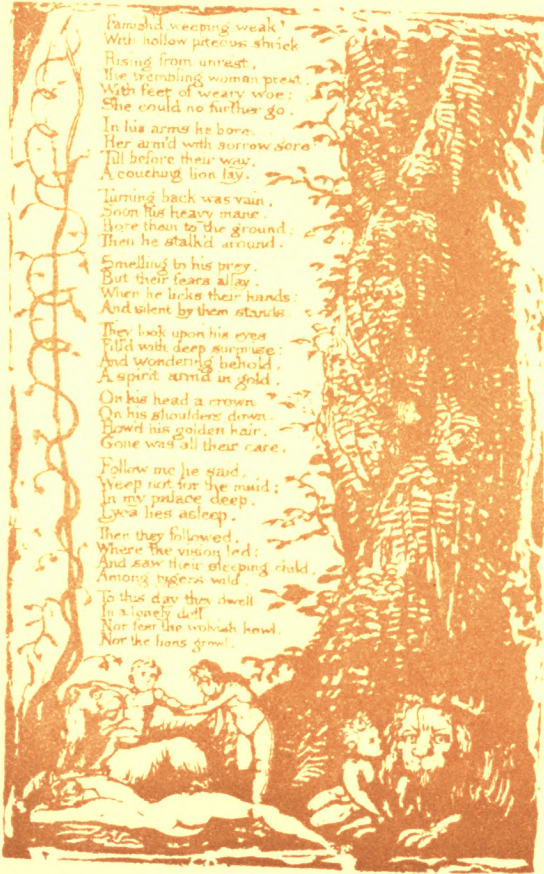 Famish'd, weeping, weak
With hollow piteous shriek
Rising from unrest,
The trembling woman prest,
With feet of weary woe;
She could no further go.
In his arms he bore.
Her arm'd with sorrow sore
Till before their way,
A couching lion lay.
Turning back was vain,
Soon his heavy mane,
Bore them to the ground;
Then he stalk'd around.
Smelling to his prey.
But their fears allay,
When he licks their hands;
And silent by them stands.
They look upon his eyes
Fill'd with deep surprise:
And wondering behold,
A spirit arm'd in gold.
On his head a crown
On his shoulders down,
Flow'd his golden hair.
Gone was all their care.
Follow me he said,
Weep not for the maid;
In my palace deep,
Lyca lies asleep.
Then they followed,
Where the vision led:
And saw their sleeping child,
Among tygers wild.
To this day they dwell
In a lonely dell
Nor fear the wolvish howl,
Nor the lions growl.